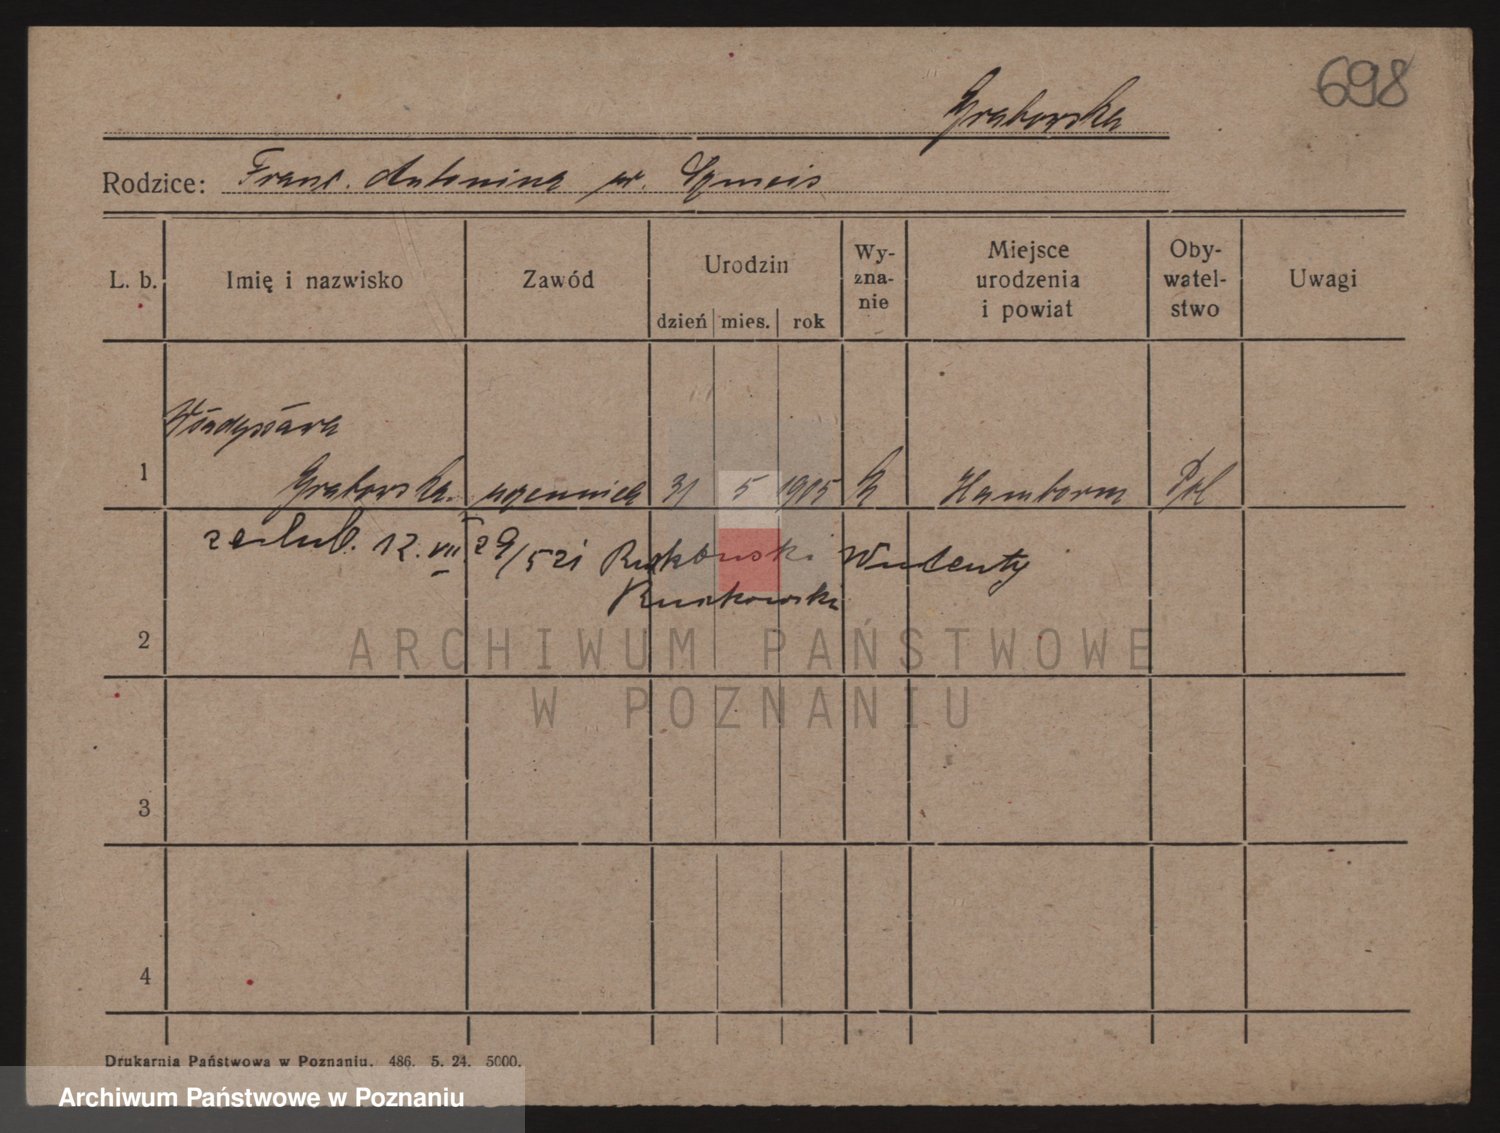 698
Grabowska
Rodzice: Franc. Antonina ur.
L. b. Imię i nazwisko Zawód Urodzin dzień mies. rok Wy-zna-nie Miejsce urodzenia i powiat Oby-watel-stwo Uwagi
Władysława
1 Grabowska uczennica 31 5 1905 k Hamborn Pol
zaślub. 12. VII. 29/521
Ruszkowski
2
ARCHIWUM PAŃSTWOWE
W POZNANIU
3
4
Drukarnia Państwowa w Poznaniu. 486. 5. 24. 5000.
Archiwum Państwowe w Poznaniu